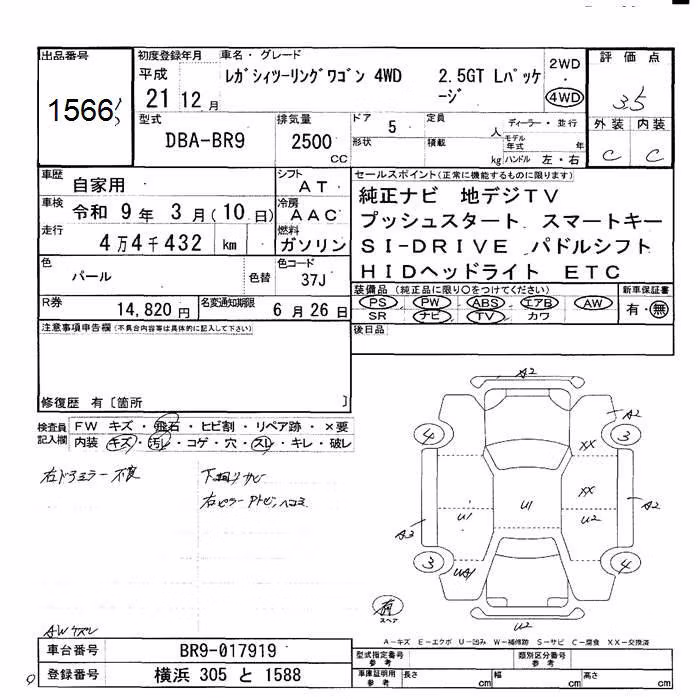 出品番号
1566
初度登録年月
平成
21 12 月
車名・グレード
レガシィツーリングワゴン 4WD 2.5GT Lパッケージ
2WD
・
4WD
評価点
3.5
外装 内装
C C
型式
DBA-BR9
排気量
2500
CC
ドア
5
形状
定員
人
積載
kg
ディーラー・並行
モデル年式
年
ハンドル 左・右
車歴
自家用
車検
令和 9 年 3 月(10 日)
走行
4万4千432 km
色
パール
色替
色コード
37J
シフト
AT
冷房
AAC
燃料
ガソリン
セールスポイント(正常に機能するものに限ります)
純正ナビ 地デジTV
プッシュスタート スマートキー
SI-DRIVE パドルシフト
HIDヘッドライト ETC
R券
14,820円
名変通知期限
6月26日
装備品(純正品に限り○をつけてください)
PS PW ABS エアB AW
SR ナビ TV カワ
新車保証書
有・無
注意事項申告欄(不具合内容等は具体的に記入して下さい)
後日品
修復歴 有〔箇所 〕
検査員記入欄
FW キズ・飛石・ヒビ割・リペア跡・×要
内装 キズ・汚レ・コゲ・穴・スレ・キレ・破レ
右ドアミラー不良
下廻りサビ
右ピラーアトビ、ヘコミ
AWケズレ
A2
A2
4 3
XX
XX
U1 U1 U2
A2
A3
3 4
UA1
U2
有
スペア
A-キズ E-エクボ U-凹み W-補修跡 S-サビ C-腐食 XX-交換済
車台番号
BR9-017919
登録番号
横浜 305 と 1588
型式指定番号
参考
類別区分番号
参考
車庫証明用
参考
長さ cm
幅 cm
高さ cm